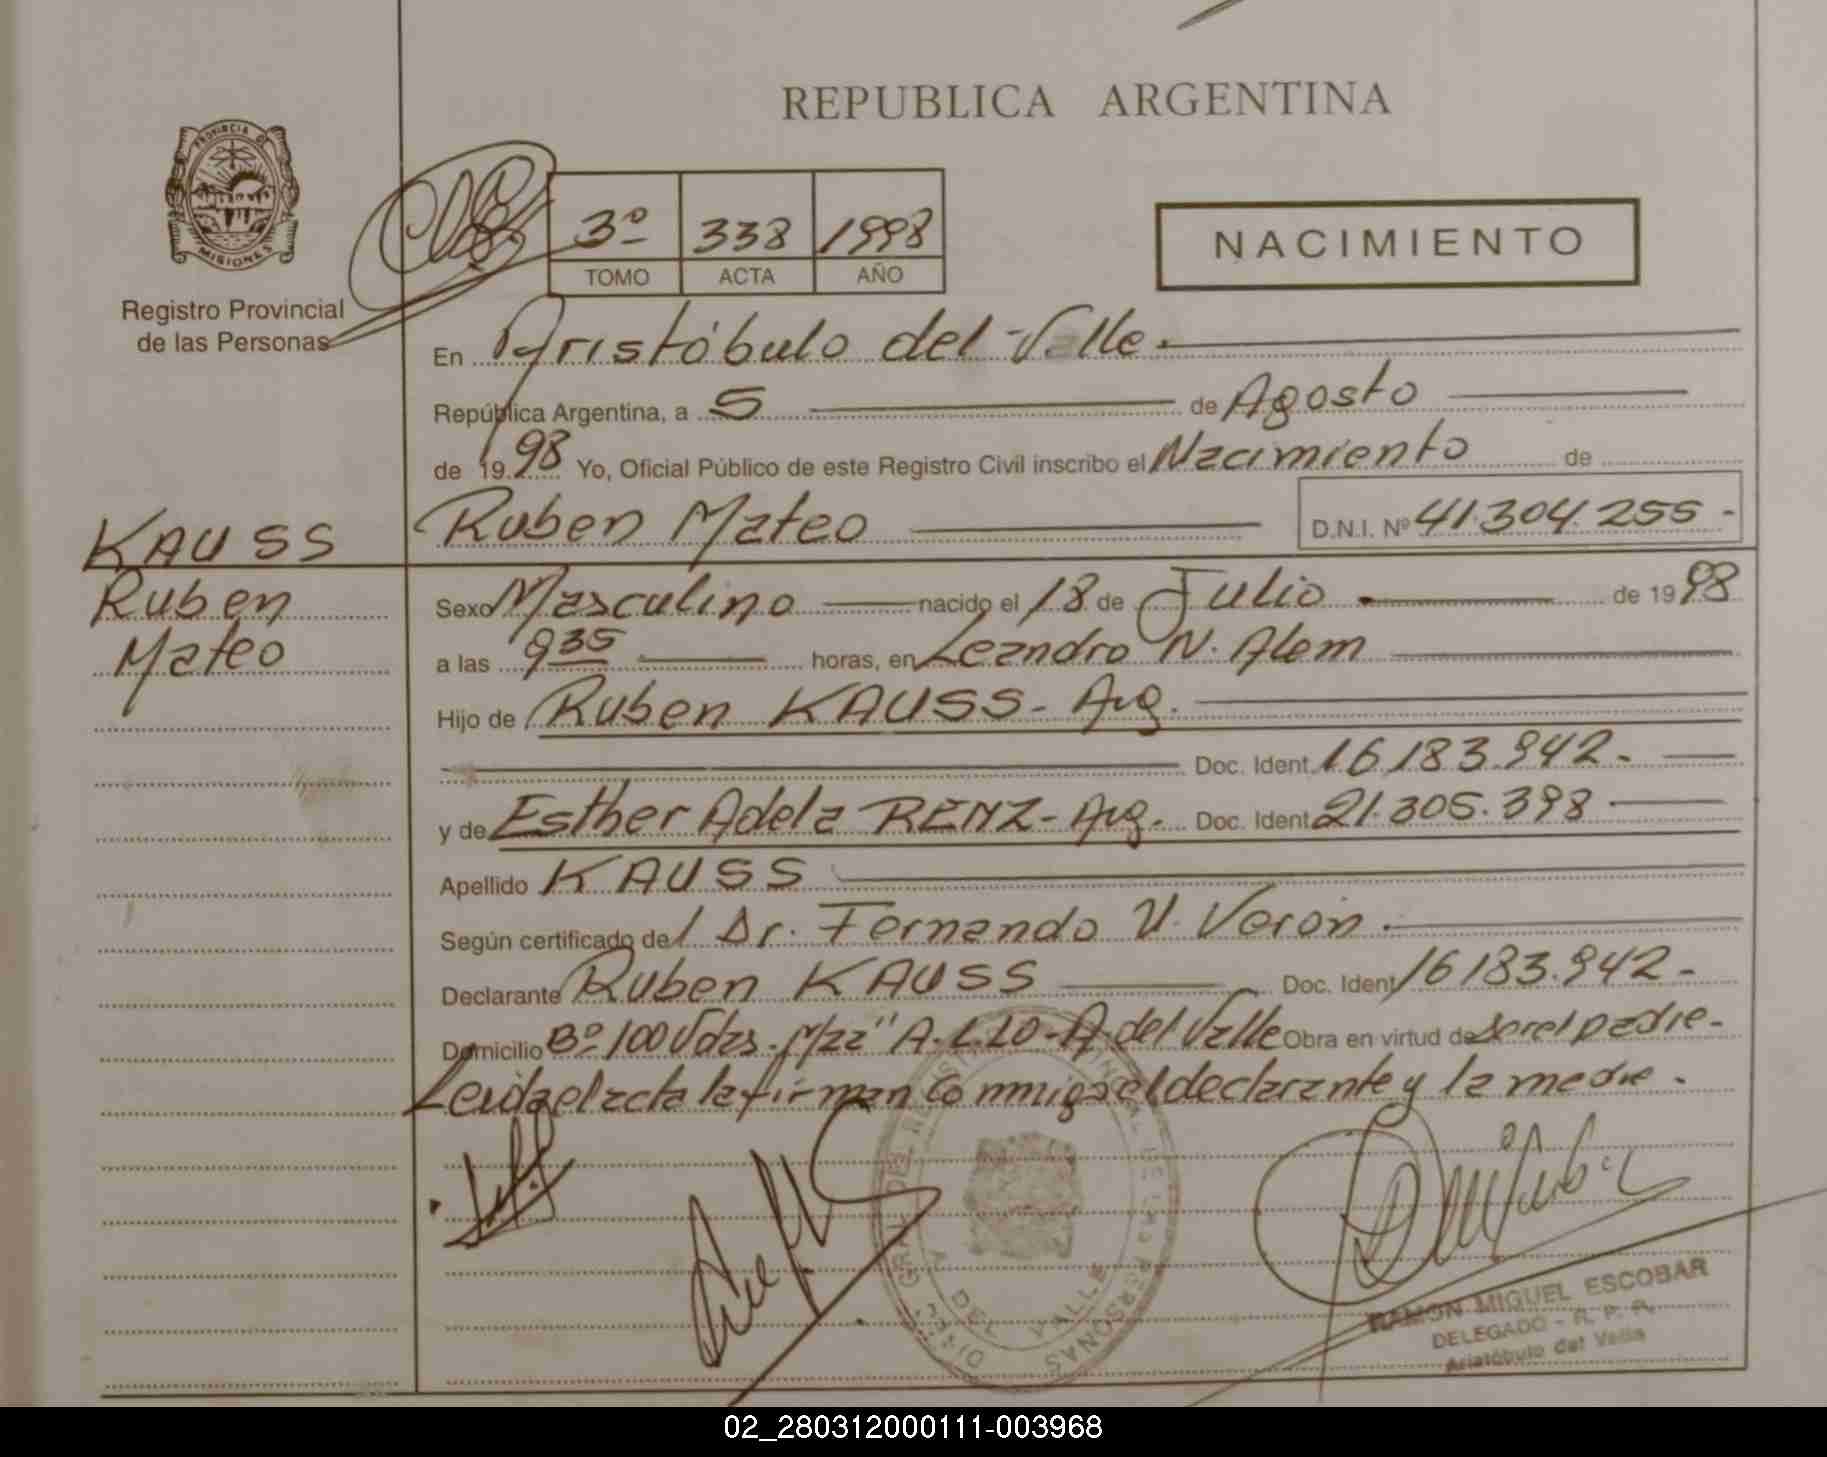 REPUBLICA ARGENTINA
PROVINCIA DE
MISIONES
Registro Provincial
de las Personas
3º 338 1998
TOMO ACTA AÑO
NACIMIENTO
En Aristóbulo del Valle.
República Argentina, a 5 de Agosto
de 1998 Yo, Oficial Público de este Registro Civil inscribo el Nacimiento de
Ruben Mateo D.N.I. Nº 41.304.255-
KAUSS
Ruben
Mateo
Sexo Masculino nacido el 18 de Julio de 1998
a las 9 35 horas, en Leandro N. Alem
Hijo de Ruben KAUSS- Arg.
Doc. Ident. 16.183.942-
y de Esther Adela RENZ- Arg. Doc. Ident. 21.305.398
Apellido KAUSS
Según certificado del Dr. Fernando V. Verón.
Declarante Ruben KAUSS Doc. Ident. 16183.942-
Domicilio Bº 100 Vdas. Mza" A. L.20-A. del Valle Obra en virtud de ser el padre-
Leida el acta la firman conmigo el declarante y la madre-
DE LAS PERSONAS
DEL VALLE
RAMON MIGUEL ESCOBAR
DELEGADO - R. P. P.
Aristóbulo del Valle
02_280312000111-003968